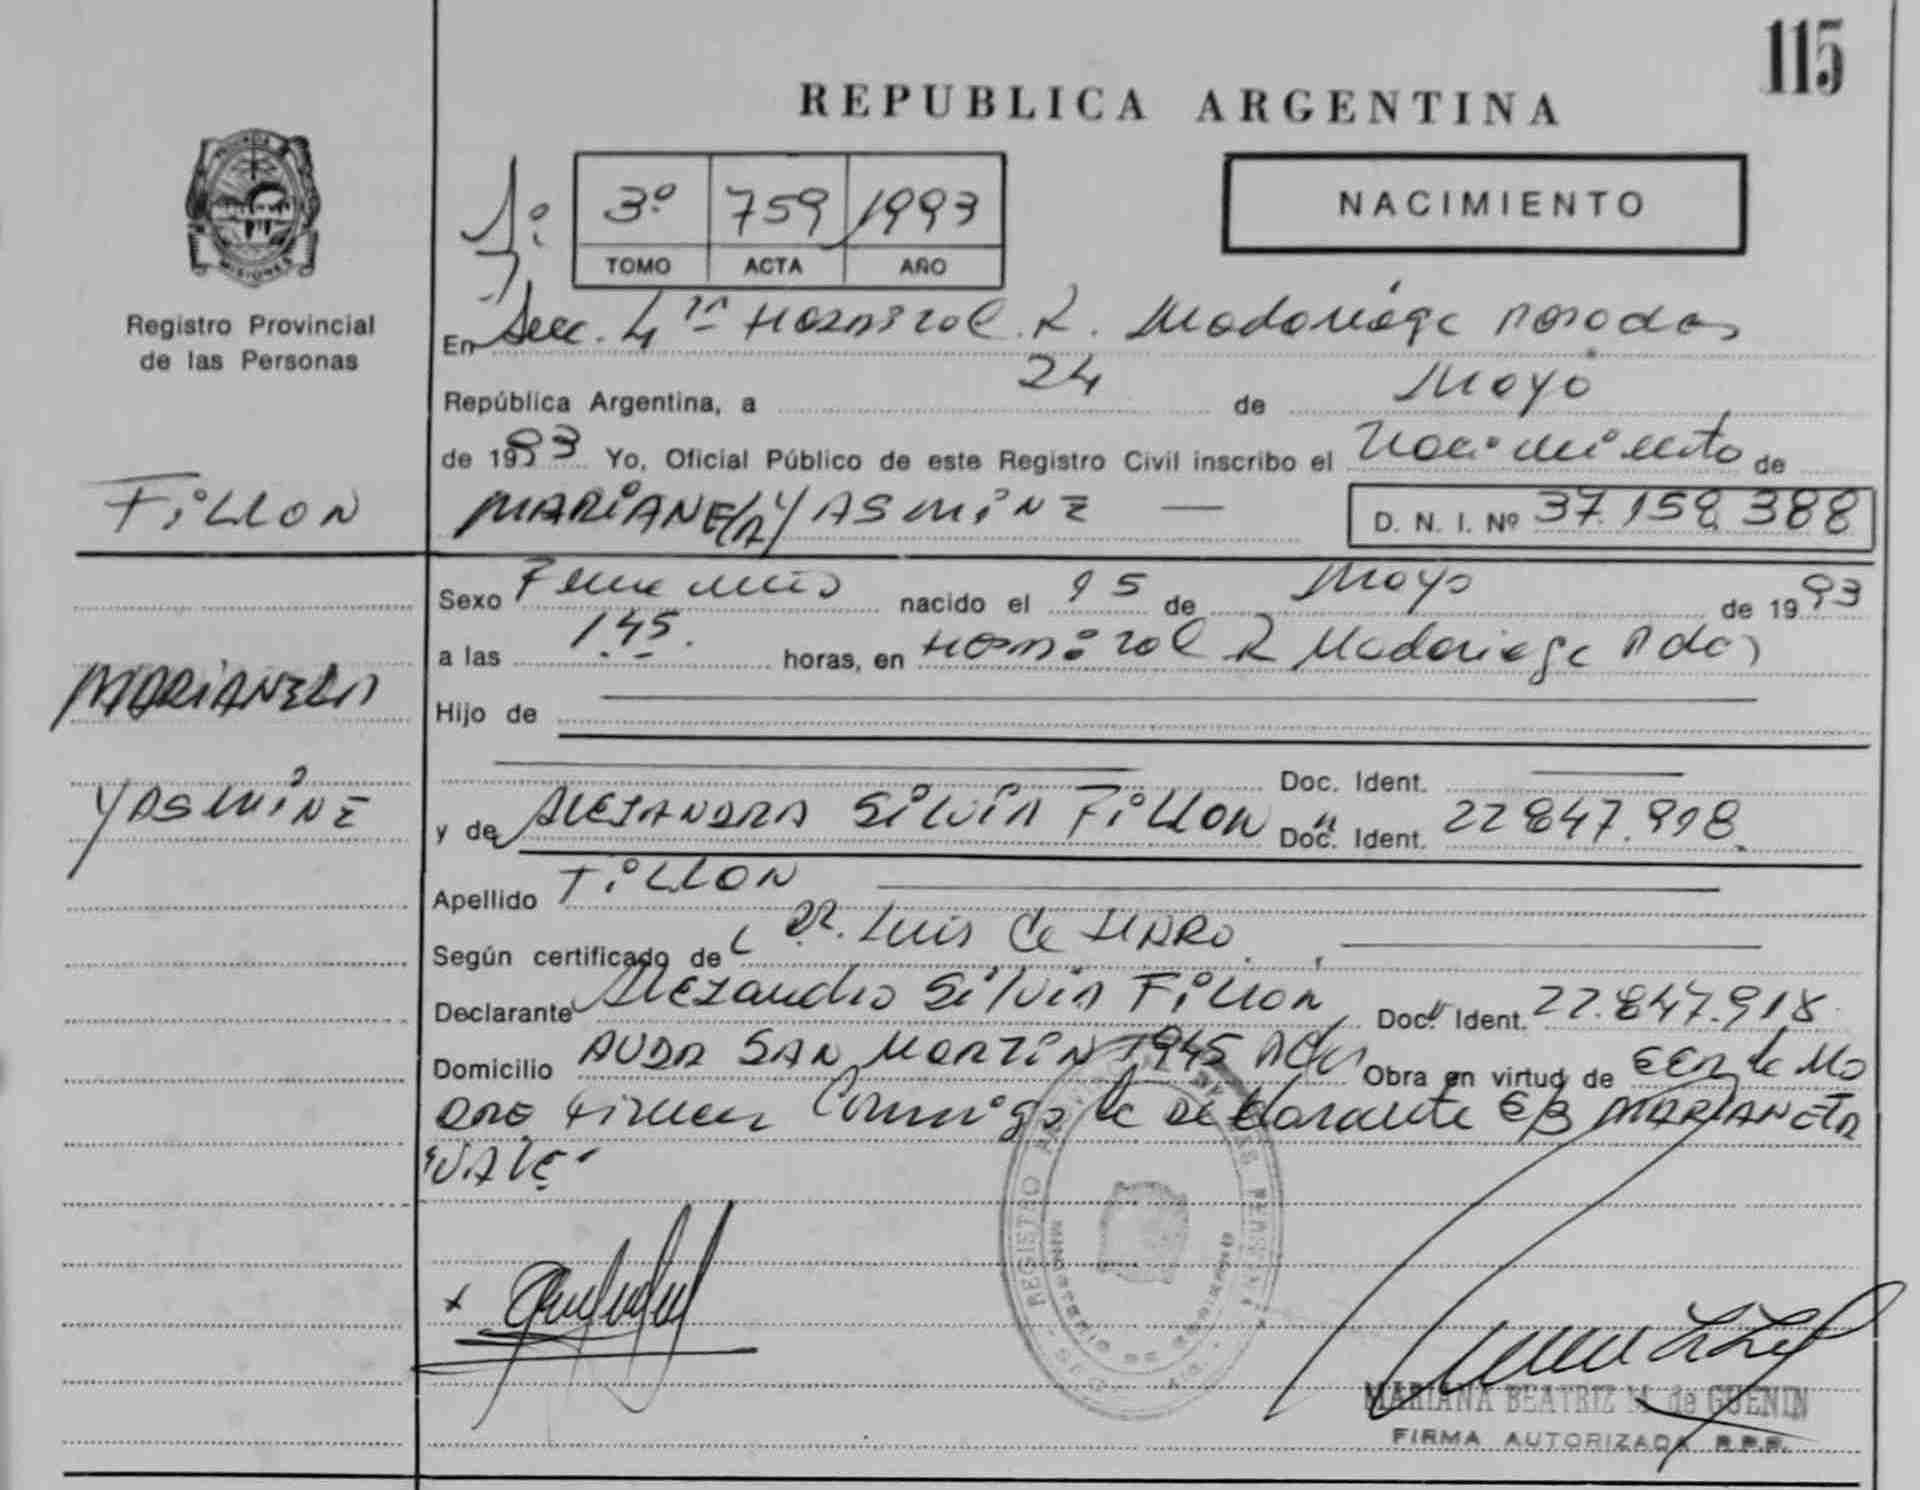 115
REPUBLICA ARGENTINA
NACIMIENTO
1º 3º 759 1993
TOMO ACTA AÑO
MISIONES
Registro Provincial
de las Personas
En Secc. 4ta Hospital R. Madariaga Posadas
República Argentina, a 24 de Mayo
de 1993 Yo, Oficial Público de este Registro Civil inscribo el Nacimiento de
FILLON
MARIANELA YASMINE — D. N. I. Nº 37.158.388
Sexo Femenino nacido el 15 de Mayo de 1993
a las 1.45. horas, en Hospital R Madariaga Pdas
MARIANELA
Hijo de
Doc. Ident.
YASMINE
y de ALEJANDRA SILVIA FILLON Doc. Ident. 22847.918.
Apellido FILLON
Según certificado de Dr. Luis de HARO
Declarante Alejandra Silvia Fillon Doc. Ident. 22.847.918
Domicilio AVDA SAN MARTIN 1945 Obra en virtud de ser la Ma
dre Firma Conmigo la declarante E/B MARIANELA
"VALE"
REGISTRO
MARIANA BEATRIZ M. de GUENIN
FIRMA AUTORIZADA R.P.P.